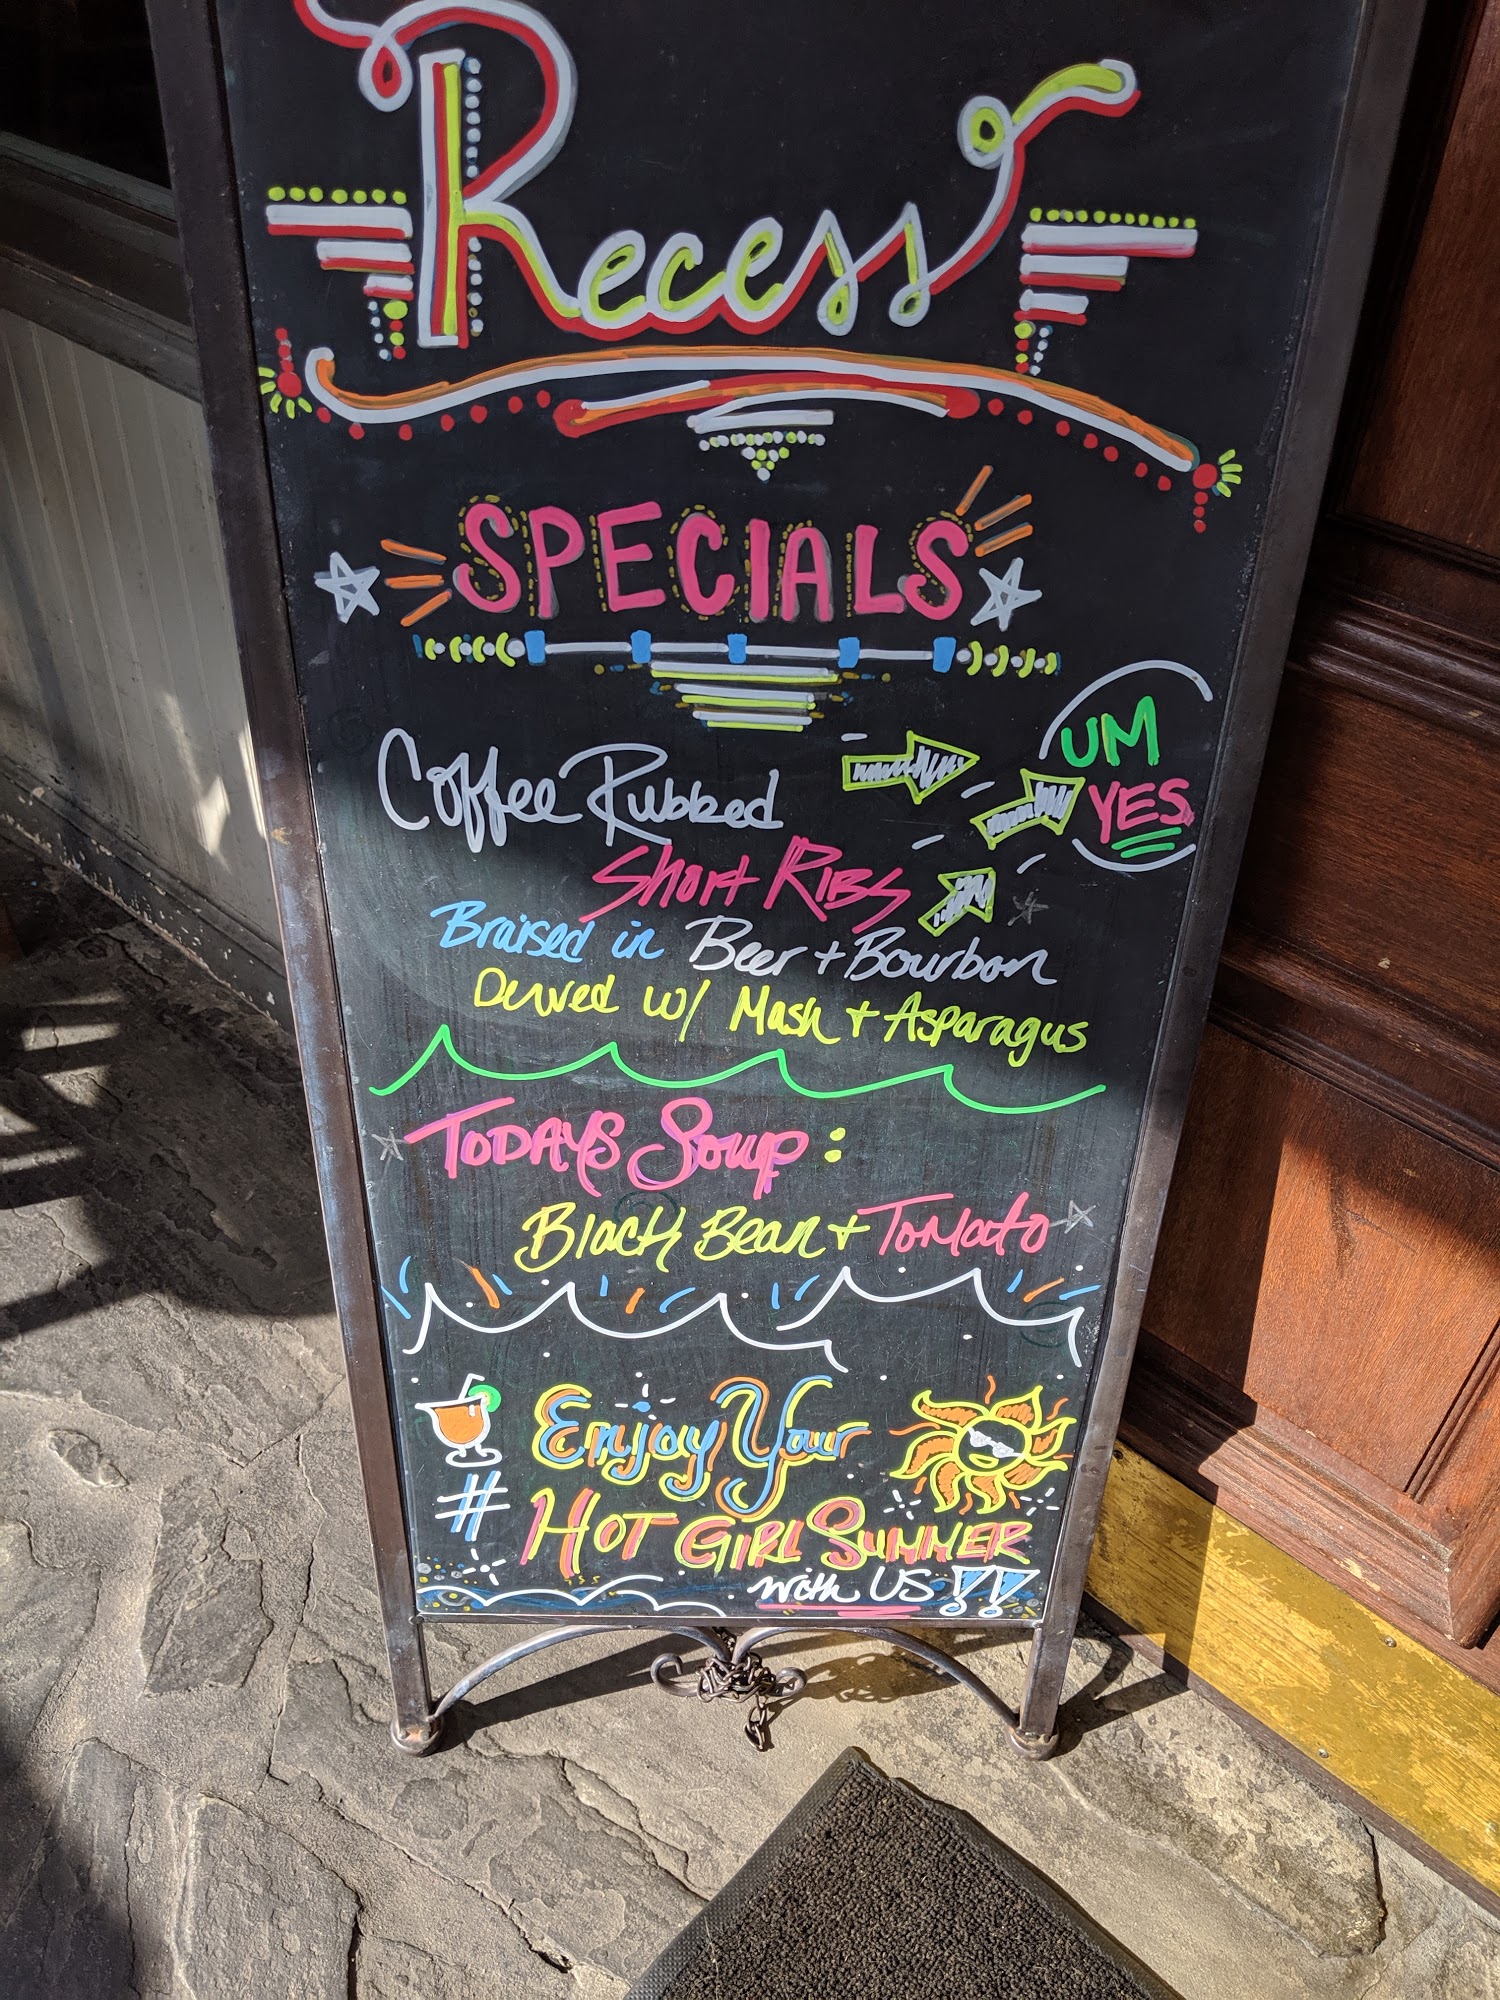 Recess
SPECIALS
Coffee Rubbed
UM
YES
Short Ribs
Braised in Beer + Bourbon
Served w/ Mash + Asparagus
TODAYS Soup:
Black Bean + Tomato
Enjoy Your
#
HOT GIRL SUMMER
with US!!